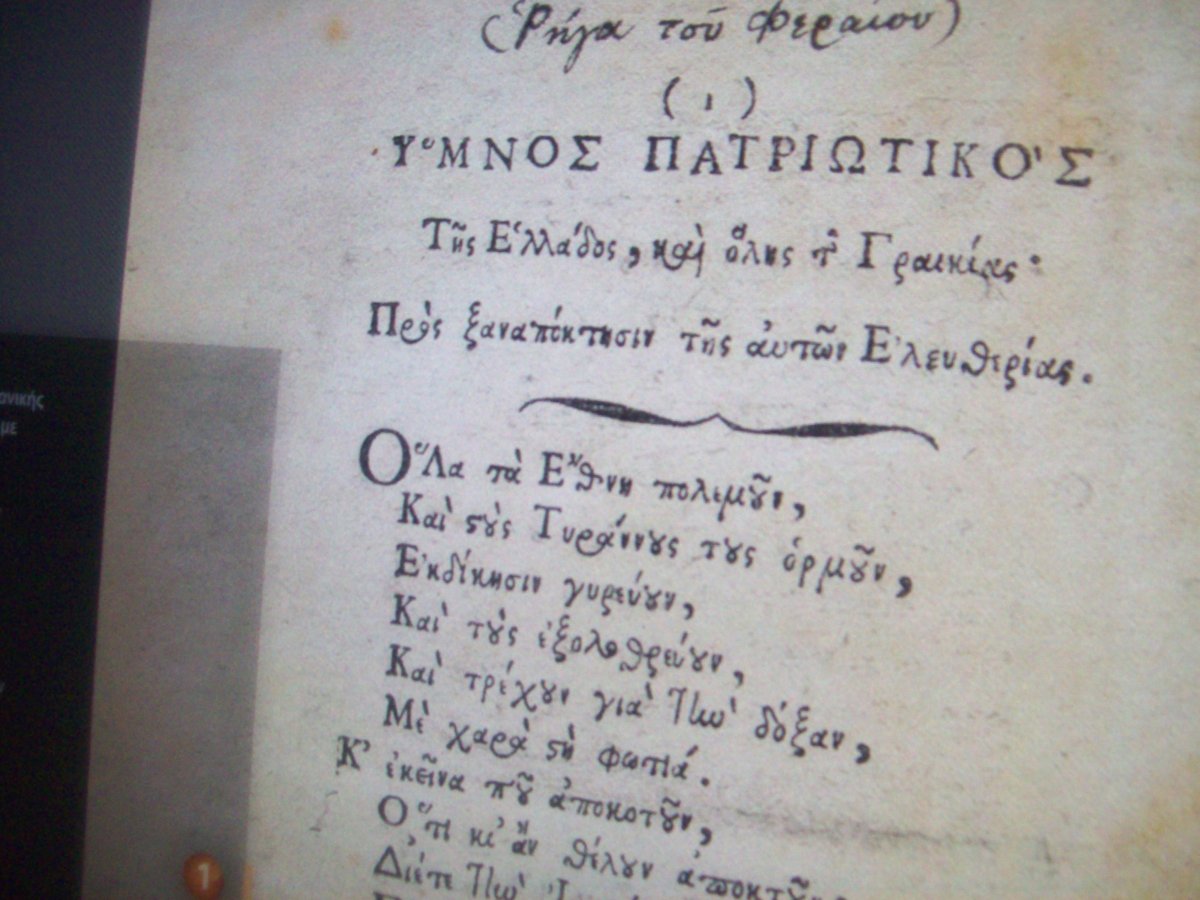 (Ῥήγα τοῦ Φεραίου)
( 1 )
ΥʽΜΝΟΣ ΠΑΤΡΙΩΤΙΚΟʹΣ
Τῆς Ἑλλάδος, καὶ ὅλης τ͂ Γραικίας·
Πρὸς ξαναπόκτησιν τῆς ἀυτῶν Ἐλευθερίας.
Ὅλα τὰ Ἔθνη πολεμȣ͂ν,
Καὶ ςȣ̀ς Τυράννȣς τȣς ὁρμȣ͂ν,
Ἐκδίκησιν γυρεύȣν,
Καὶ τȣ̀ς ἐξολοθρεύȣν,
Καὶ τρέχȣν γιὰ τὼ δόξαν,
Μὲ χαρὰ ςὴ φωτιά.
Κ' ἐκεῖνα πȣ͂ ἀποκοτȣ͂ν,
Ὅ,τι κι' ἂν θέλȣν ἀποκτȣ͂ν
Διέτε
ονικής
με
1